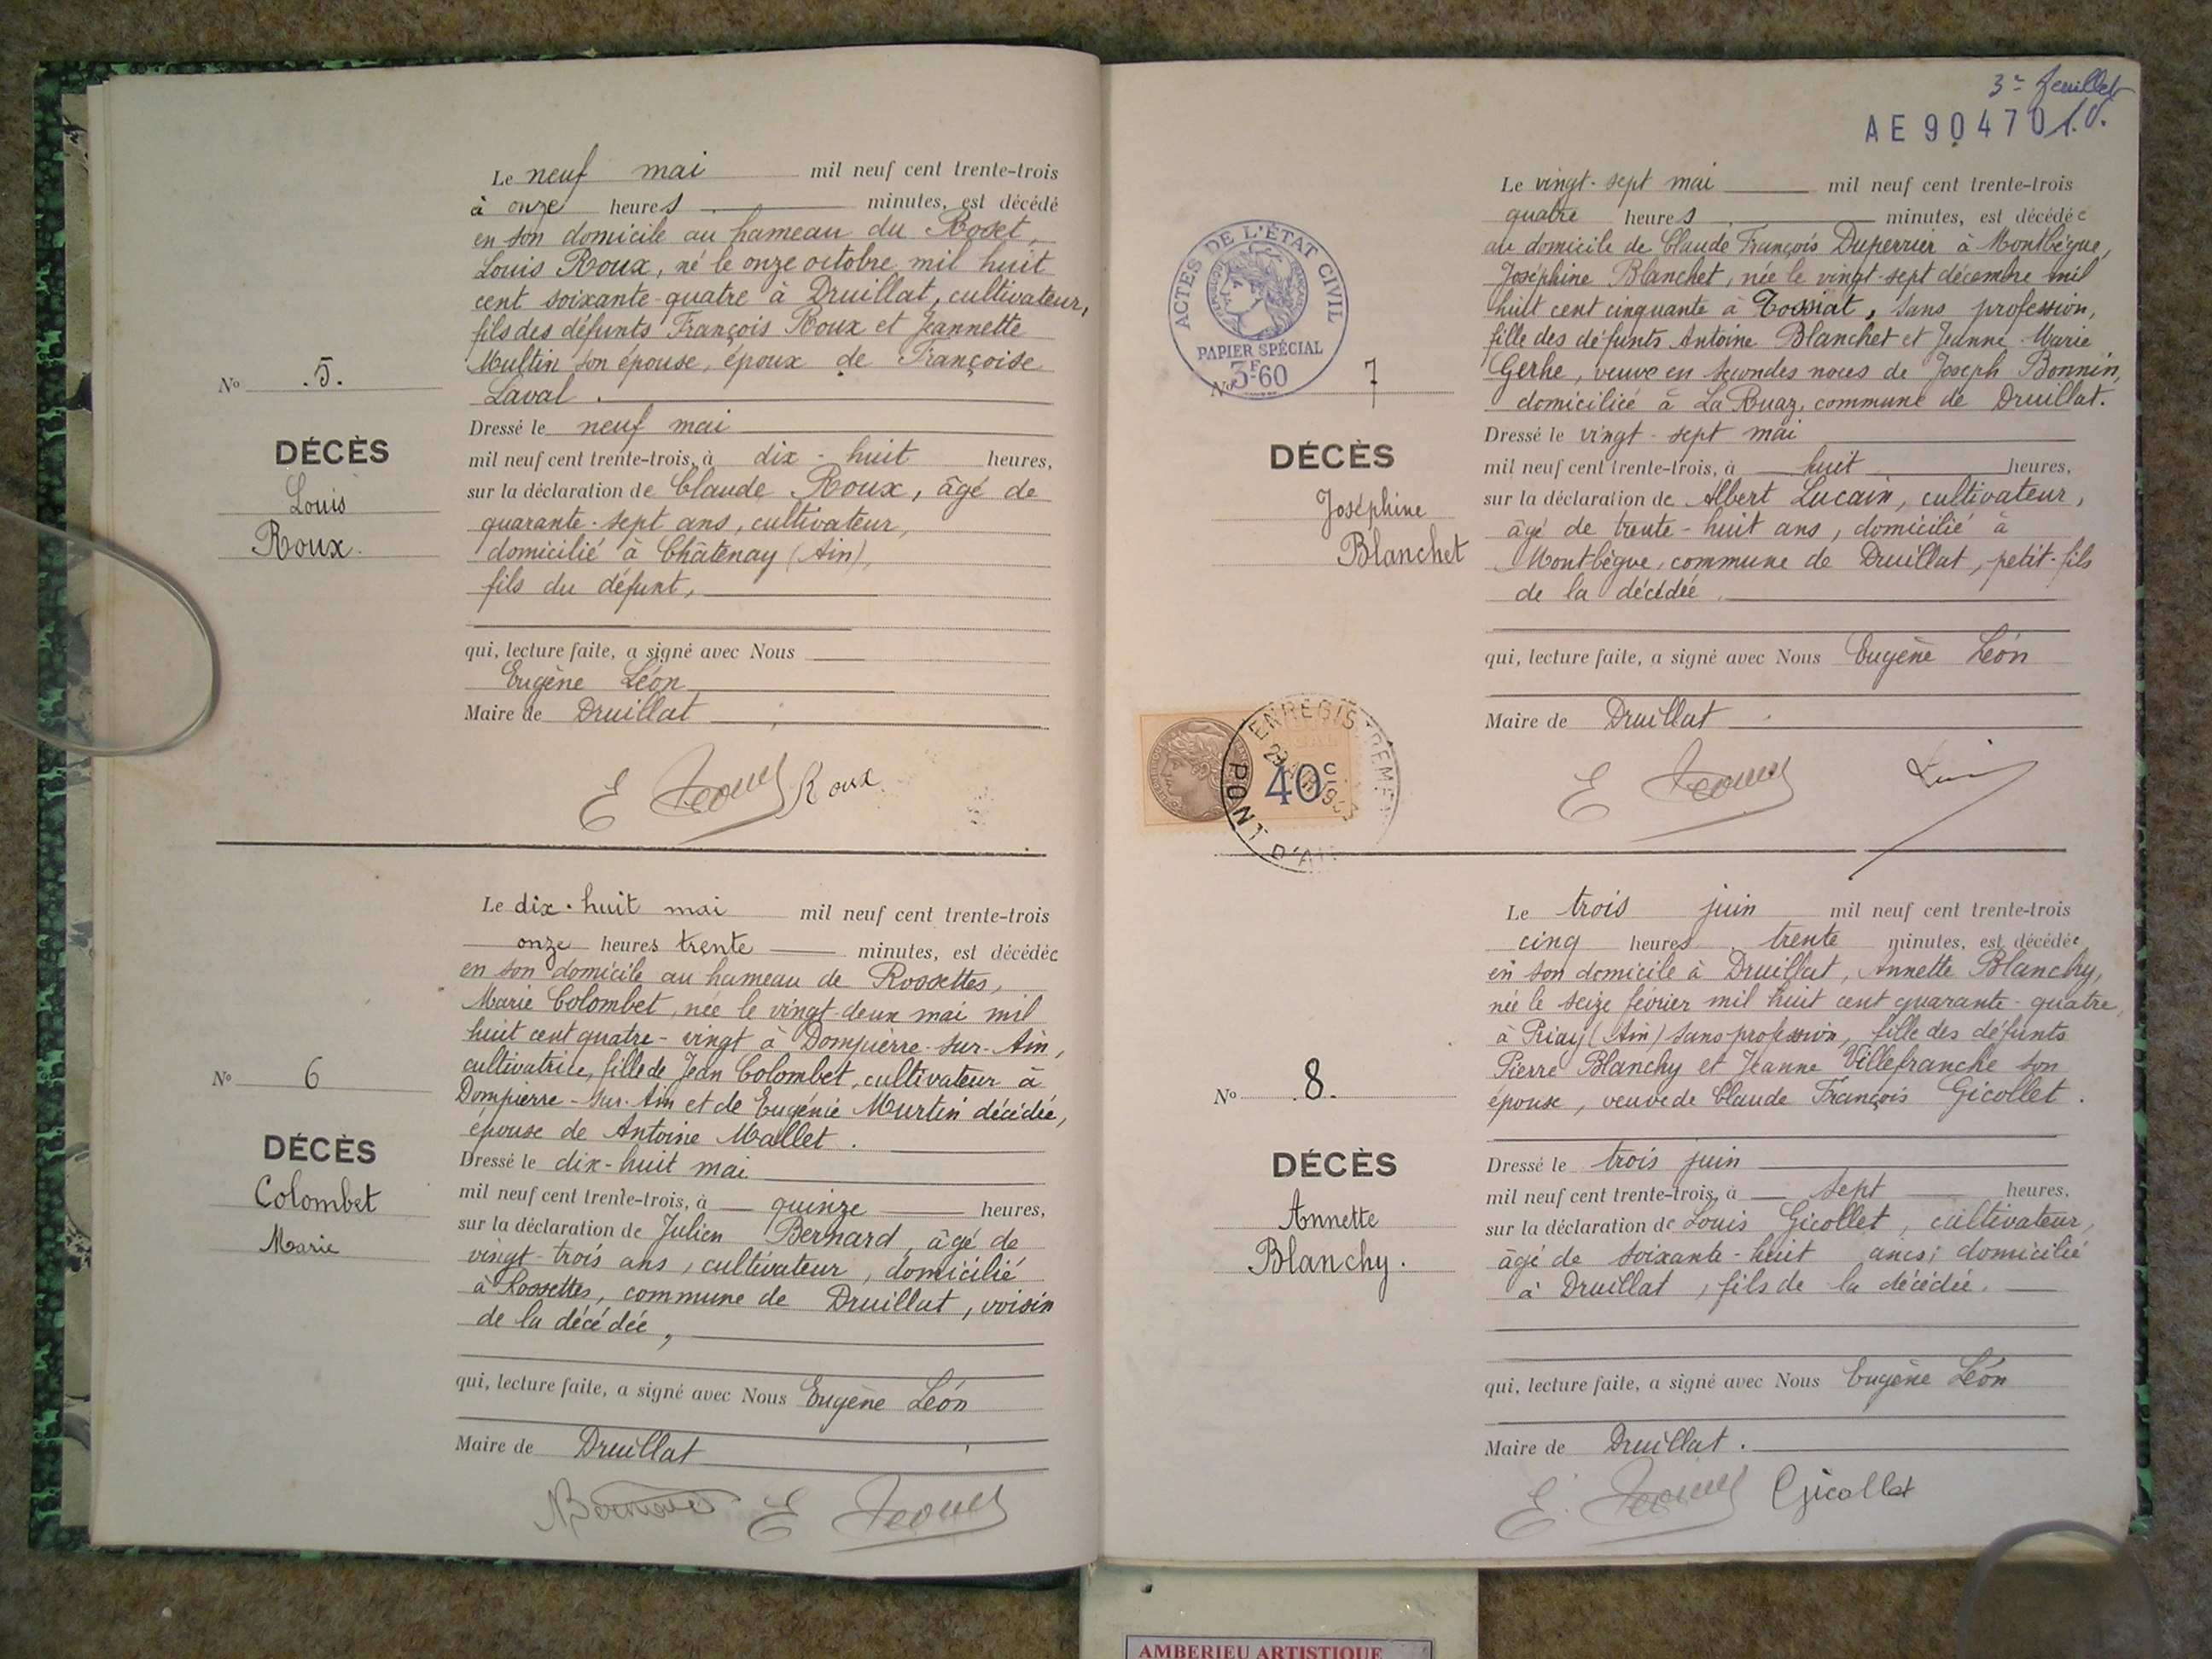 Le neuf mai mil neuf cent trente-trois
à onze heures minutes, est décédé
en son domicile au hameau du Roset,
Louis Roux, né le onze octobre mil huit
cent soixante-quatre à Druillat, cultivateur,
fils des défunts François Roux et Jeannette
Multin son épouse, époux de Françoise
Laval.
Nº 5.
DÉCÈS
Louis
Roux.
Dressé le neuf mai
mil neuf cent trente-trois, à dix-huit heures,
sur la déclaration de Claude Roux, âgé de
quarante-sept ans, cultivateur,
domicilié à Châtenay (Ain),
fils du défunt,
qui, lecture faite, a signé avec Nous
Eugène Léon
Maire de Druillat
E Roux
Le dix-huit mai mil neuf cent trente-trois
onze heures trente minutes, est décédée
en son domicile au hameau de Rossettes,
Marie Colombet, née le vingt-deux mai mil
huit cent quatre-vingt à Dompierre-sur-Ain,
cultivatrice, fille de Jean Colombet, cultivateur à
Dompierre-sur-Ain et de Eugénie Murtin décédée,
épouse de Antoine Mallet.
Nº 6
DÉCÈS
Colombet
Marie
Dressé le dix-huit mai
mil neuf cent trente-trois, à quinze heures,
sur la déclaration de Julien Bernard, âgé de
vingt-trois ans, cultivateur, domicilié
à Rossettes, commune de Druillat, voisin
de la décédée,
qui, lecture faite, a signé avec Nous Eugène Léon
Maire de Druillat
E
3e feuillet
AE 90470
Le vingt-sept mai mil neuf cent trente-trois
quatre heures minutes, est décédée
au domicile de Claude François Duperrier à Montbègue,
Joséphine Blanchet, née le vingt-sept décembre mil
huit cent cinquante à Tossiat, sans profession,
fille des défunts Antoine Blanchet et Jeanne Marie
Gerhe, veuve en secondes noces de Joseph Bonnin,
domiciliée à La Ruaz, commune de Druillat.
ACTES DE L'ÉTAT CIVIL
PAPIER SPÉCIAL
3F60
Nº 7
DÉCÈS
Joséphine
Blanchet
Dressé le vingt-sept mai
mil neuf cent trente-trois, à huit heures,
sur la déclaration de Albert Lucain, cultivateur,
âgé de trente-huit ans, domicilié à
Montbègue, commune de Druillat, petit-fils
de la décédée.
qui, lecture faite, a signé avec Nous Eugène Léon
Maire de Druillat
ENREGISTREMENT
40c
PONT D'AIN
E
Le trois juin mil neuf cent trente-trois
cinq heures trente minutes, est décédée
en son domicile à Druillat, Annette Blanchy,
née le seize février mil huit cent quarante-quatre
à Priay (Ain) sans profession, fille des défunts
Pierre Blanchy et Jeanne Villefranche son
épouse, veuve de Claude François Gicollet.
Nº 8.
DÉCÈS
Annette
Blanchy.
Dressé le trois juin
mil neuf cent trente-trois, à sept heures,
sur la déclaration de Louis Gicollet, cultivateur,
âgé de soixante-huit ans; domicilié
à Druillat, fils de la décédée.
qui, lecture faite, a signé avec Nous Eugène Léon
Maire de Druillat.
E. Gicollet
AMBERIEU ARTISTIQUE